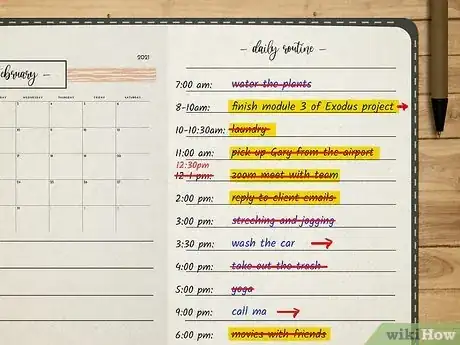 ebruary —
2021
WEDNESDAY THURSDAY FRIDAY SATURDAY
— daily routine —
7:00 am: water the plants
8-10am: finish module 3 of Exodus project
10-10:30am: laundry
11:00 am: pick up Gary from the airport
12:30pm
12-1 pm: zoom meet with team
2:00 pm: reply to client emails
3:00 pm: streching and jogging
3:30 pm: wash the car
4:00 pm: take out the trash
5:00 pm: yoga
9:00 pm: call ma
6:00 pm: movies with friends
wikiHow